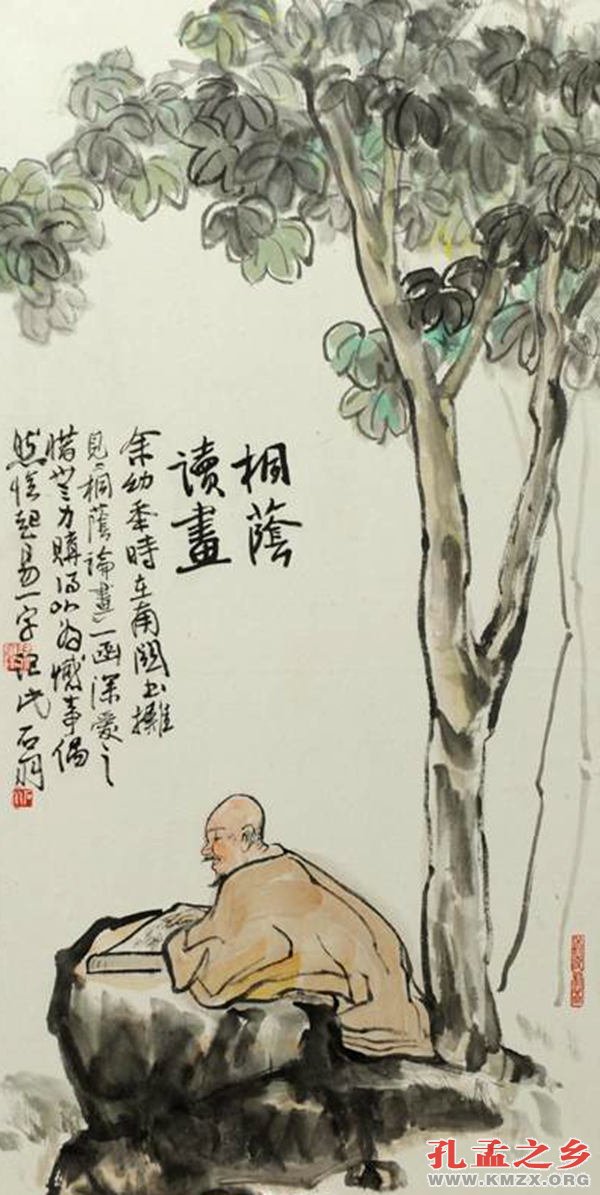 桐蔭
讀畫
余幼秊時在南關书攤
見《桐蔭論畫》一函深愛之
惜無力購得以為憾事偶
然憶起易一字記此石
孔孟之乡
WWW.KMZX.ORG